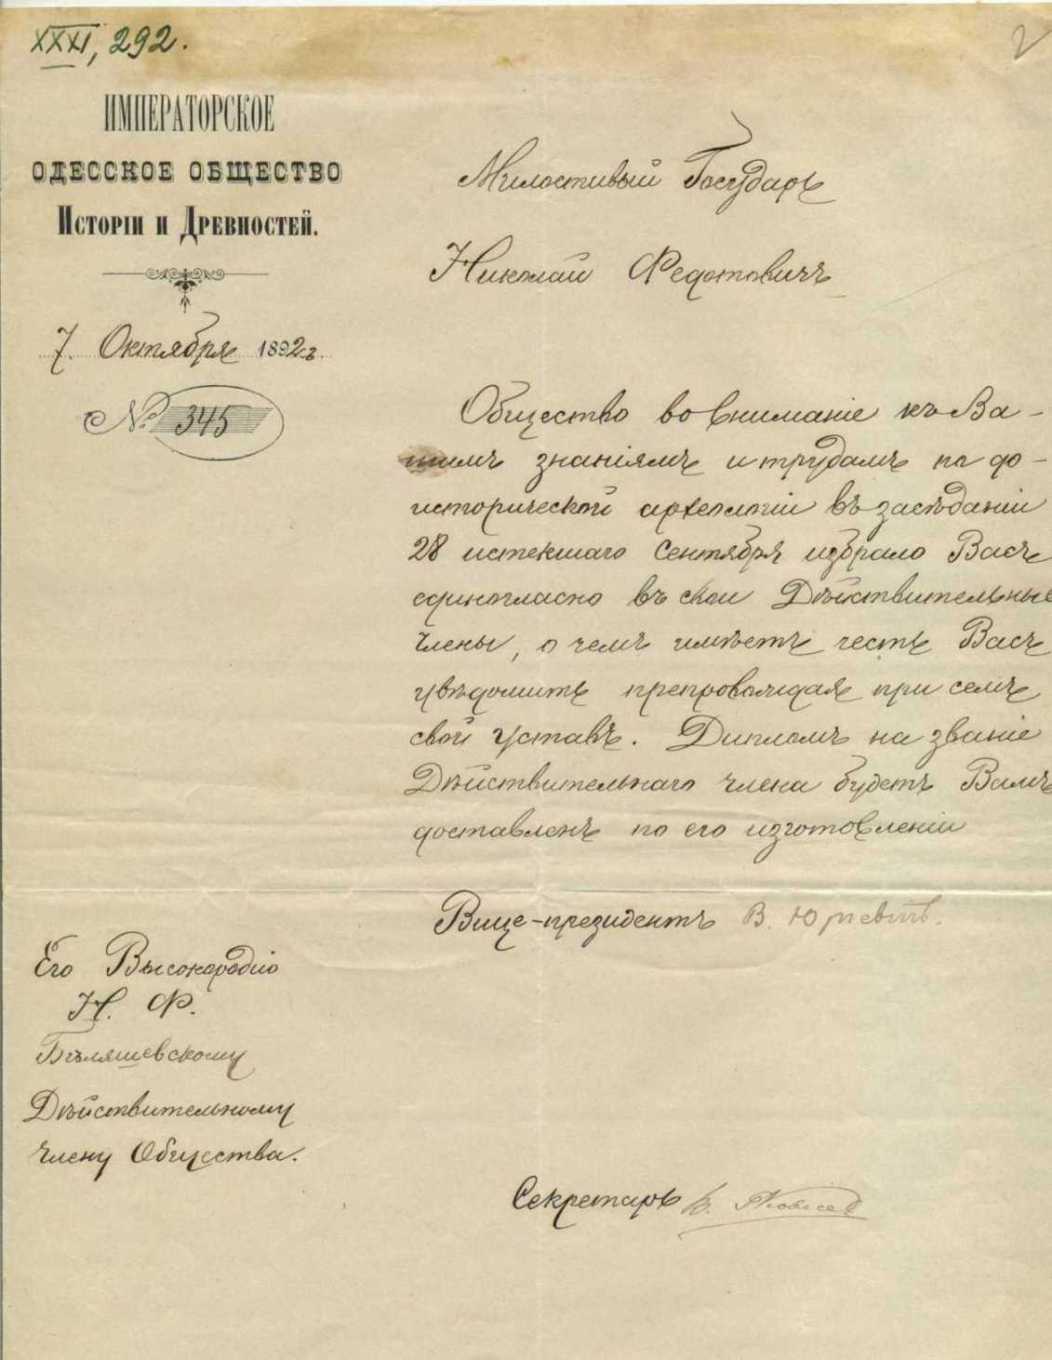 XXXI, 292.
2
ИМПЕРАТОРСКОЕ
ОДЕССКОЕ ОБЩЕСТВО
Исторіи и Древностей.
7. Октября 1892 г.
№ 345
Милостивый Государь
Николай Федотовичъ
Общество во вниманіе къ Ва-
шимъ знаніямъ и трудамъ по до-
исторической археологіи въ засѣданіи
28 истекшаго Сентября избрало Васъ
единогласно въ свои Дѣйствительные
члены, о чемъ имѣетъ честь Васъ
увѣдомить препровождая при семъ
свой Уставъ. Дипломъ на званіе
Дѣйствительнаго члена будетъ Вамъ
доставленъ по его изготовленіи
Вице-президентъ В. Юргевичъ.
Его Высокородію
Н. Ф.
Бѣляшевскому
Дѣйствительному
члену Общества.
Секретарь В. Яковлев